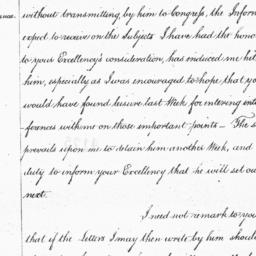 without transmitting by him to Congress, the Inform
expect to receive on the Subjects I have had the hono
to your Excellency's consideration, has induced me hi
him, especially as I was encouraged to hope that yo
would have found leisure last Week for entering into
ferences with me on those important points — The s
prevails upon me to detain him another Week, and
duty to inform your Excellency that he will set ou
next.
I need not remark to you
that if the Letters I may then write by him shoul